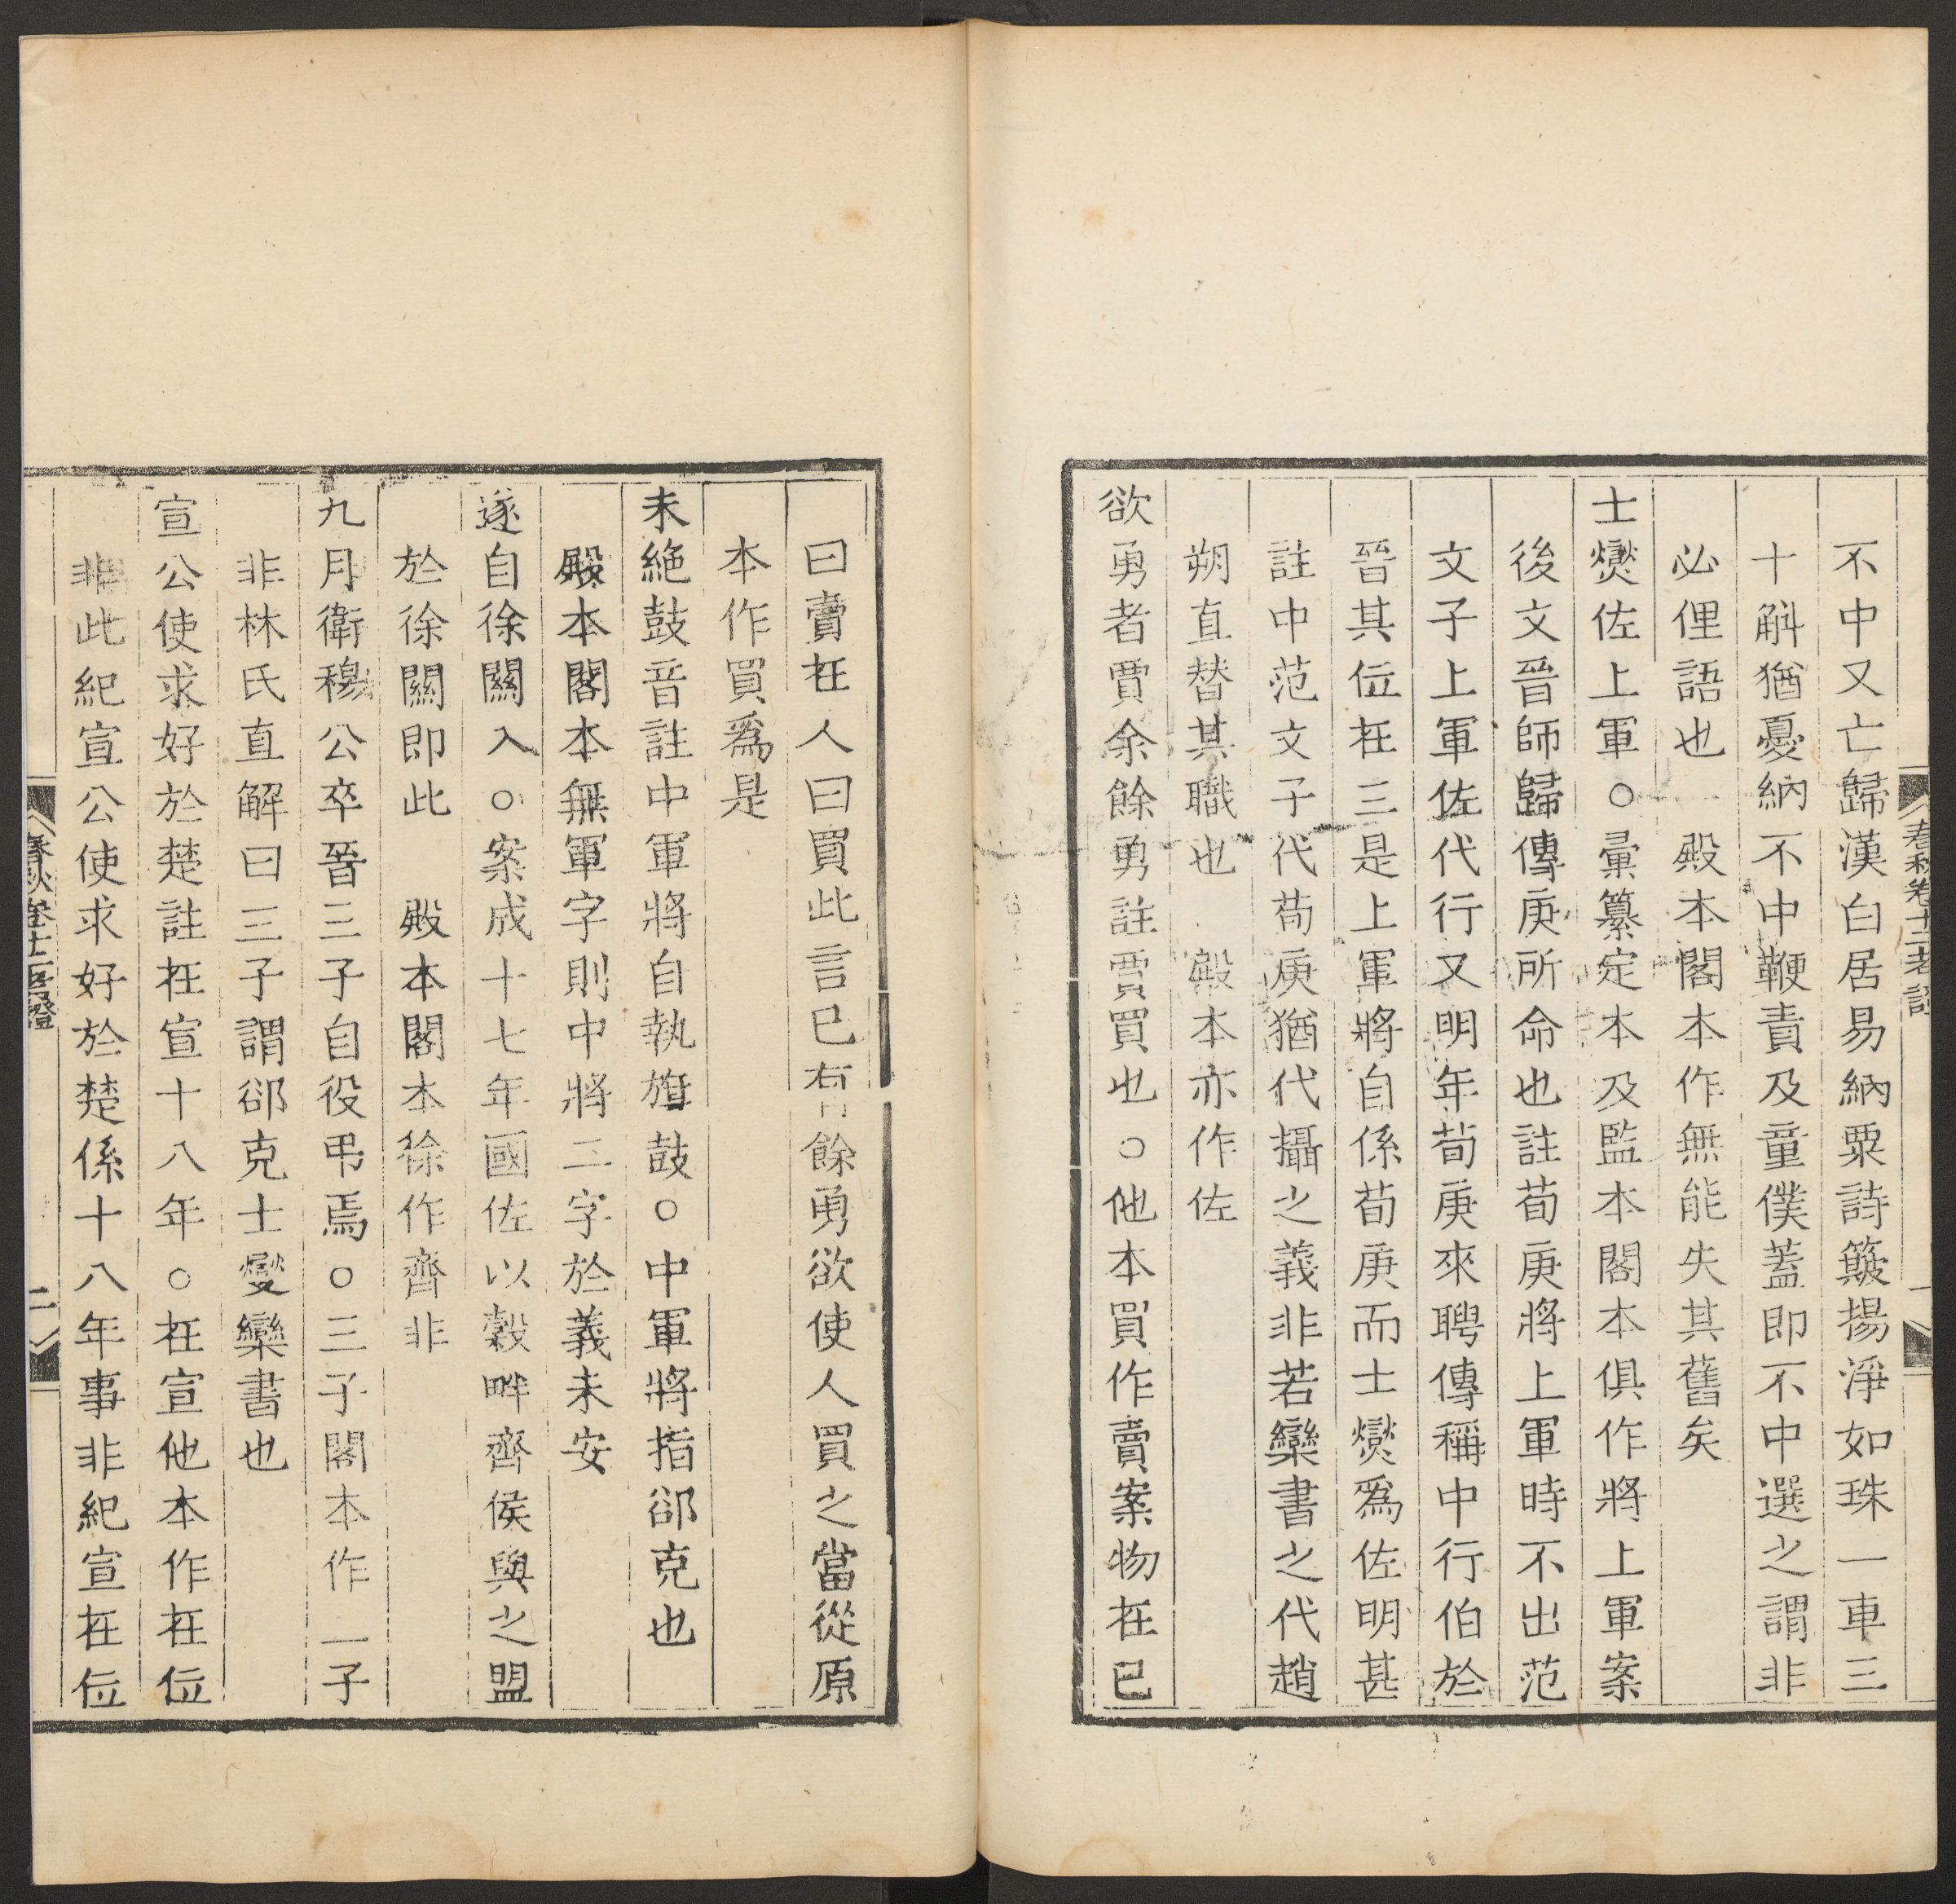 春秋卷十二考證
一
不中又亡歸漢白居易納粟詩簸揚淨如珠一車三
十斛猶憂納不中鞭責及童僕蓋即不中選之謂非
必俚語也 殿本閣本作無能失其舊矣
士燮佐上軍○彚纂定本及監本閣本俱作將上軍案
後文晉師歸傳庚所命也註荀庚將上軍時不出范
文子上軍佐代行又明年荀庚來聘傳稱中行伯於
晉其位在三是上軍將自係荀庚而士燮爲佐明甚
註中范文子代荀庚猶代攝之義非若欒書之代趙
朔直替其職也 殿本亦作佐
欲勇者賈余餘勇註賈買也○他本買作賣案物在已
曰賣在人曰買此言已有餘勇欲使人買之當從原
本作買爲是
未絶鼓音註中軍將自執旗鼓○中軍將指郤克也
殿本閣本無軍字則中將二字於義未安
遂自徐關入○案成十七年國佐以穀畔齊侯與之盟
於徐關即此 殿本閣本徐作齊非
九月衛穆公卒晉三子自役弔焉○三子閣本作二子
非林氏直解曰三子謂郤克士燮欒書也
宣公使求好於楚註在宣十八年○在宣他本作在位
非此紀宣公使求好於楚係十八年事非紀宣在位
春秋卷十二考證
二